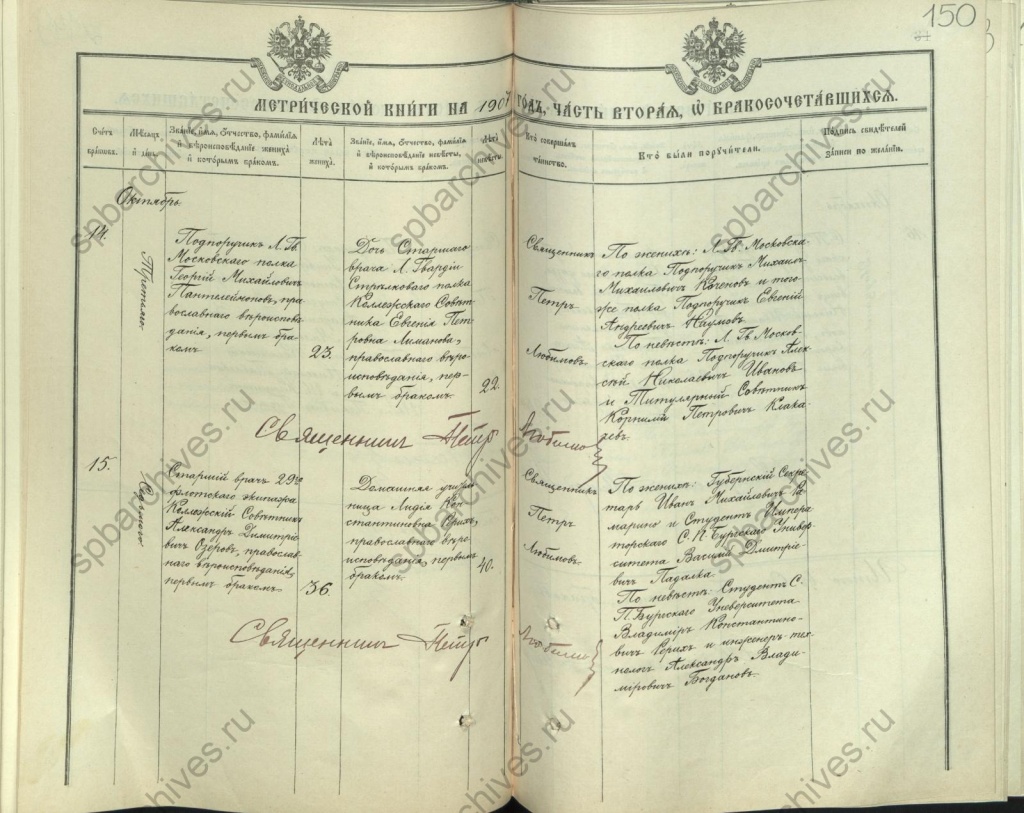 150
МЕТРИЧЕСКОЙ КНИГИ НА 1907 ГОДЪ, ЧАСТЬ ВТОРАЯ, Ѡ БРАКОСОЧЕТАВШИХСЯ.
Счетъ браковъ.
Мѣсяцъ и день.
Званіе, имя, отчество, фамилія и вѣроисповѣданіе жениха и которымъ бракомъ.
Лѣта жениха.
Званіе, имя, отчество, фамилія и вѣроисповѣданіе невѣсты, и которымъ бракомъ.
Лѣта невѣсты.
Кто совершалъ таинство.
Кто были поручители.
Подпись свидѣтелей записи по желанію.
Октябрь
14.
Третьяго
Подпоручикъ Л. Гв.
Московскаго полка
Георгій Михайловичъ
Пантелеймоновъ, пра-
вославнаго вѣроиспове-
данія, первымъ бра-
комъ
23.
Дочь Старшаго
врача Л. Гвардіи
Стрѣлковаго полка
Коллежскаго Совѣт-
ника Евгенія Пет-
ровна Лиманова,
православнаго вѣро-
исповѣданія, пер-
вымъ бракомъ
22.
Священникъ
Петръ
Любимовъ
По женихѣ: Л. Гв. Московска-
го полка Подпоручикъ Михаилъ
Михайловичъ Коченовъ и того-
же полка Подпоручикъ Евгеній
Андреевичъ Наумовъ
По невѣстѣ: Л. Гв. Москов-
скаго полка Подпоручикъ Алек-
сѣй Николаевичъ Ивановъ
и Титулярный Совѣтникъ
Корнилій Петровичъ
Священникъ Петръ Любимовъ
15.
Седьмого
Старшій врачъ 29го
флотскаго экипажа
Коллежскій Совѣтникъ
Александръ Димитріе-
вичъ Озеровъ, православ-
наго вѣроисповѣданія,
первымъ бракомъ
36.
Домашняя учитель-
ница Лидія Кон-
стантиновна Ерихъ,
православнаго вѣро-
исповѣданія, первымъ
бракомъ.
40.
Священникъ
Петръ
Любимовъ
По женихѣ: Губернскій Секре-
тарь Иванъ Михайловичъ
и Студентъ Импера-
торскаго С. П. Бургскаго Универ-
ситета Василій Дмитріе-
вичъ Падалка
По невѣстѣ: Студентъ С.
П. Бургскаго Университета
Владиміръ Константино-
вичъ Ерихъ и инженеръ-тех-
нологъ Александръ Влади-
міровичъ Богдановъ.
Священникъ Петръ Любимовъ
spbarchives.ru